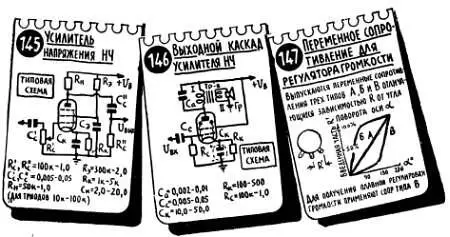 145 УСИЛИТЕЛЬ
НАПРЯЖЕНИЯ НЧ
ТИПОВАЯ
СХЕМА
Rн
Rэ
+Uв
Cс
Cэ
Uвых
Cк
Rк
R'с, R"с=100к-1,0
C'с, C"с=0,005-0,05
Rн=50к-1,0
(ДЛЯ ТРИОДОВ 10к-100к)
Rэ=300к-2,0
Rк=1к-5к
Cк=2,0-20,0
146 ВЫХОДНОЙ КАСКАД
УСИЛИТЕЛЯ НЧ
+Uв
Гр
Cс
Uвх
Rс
Cк
Rк
ТИПОВАЯ
СХЕМА
Cа=0,002-0,01
Cс=0,005-0,05
Cк=10,0-50,0
Rк=100-500
Rс=100к-1,0
147 ПЕРЕМЕННОЕ СОПРО-
ТИВЛЕНИЕ ДЛЯ
РЕГУЛЯТОРА ГРОМКОСТИ
ВЫПУСКАЮТСЯ ПЕРЕМЕННЫЕ СОПРОТИВ-
ЛЕНИЯ ТРЕХ ТИПОВ А, Б и В ОТЛИЧА-
ЮЩИЕСЯ ЗАВИСИМОСТЬЮ R ОТ УГЛА
ПОВОРОТА ОСИ α
100%
Б
А
В
90
150
α°
ДЛЯ ПОЛУЧЕНИЯ ПЛАВНОЙ РЕГУЛИРОВКИ
ГРОМКОСТИ ПРИМЕНЯЮТ СОПР ТИПА В